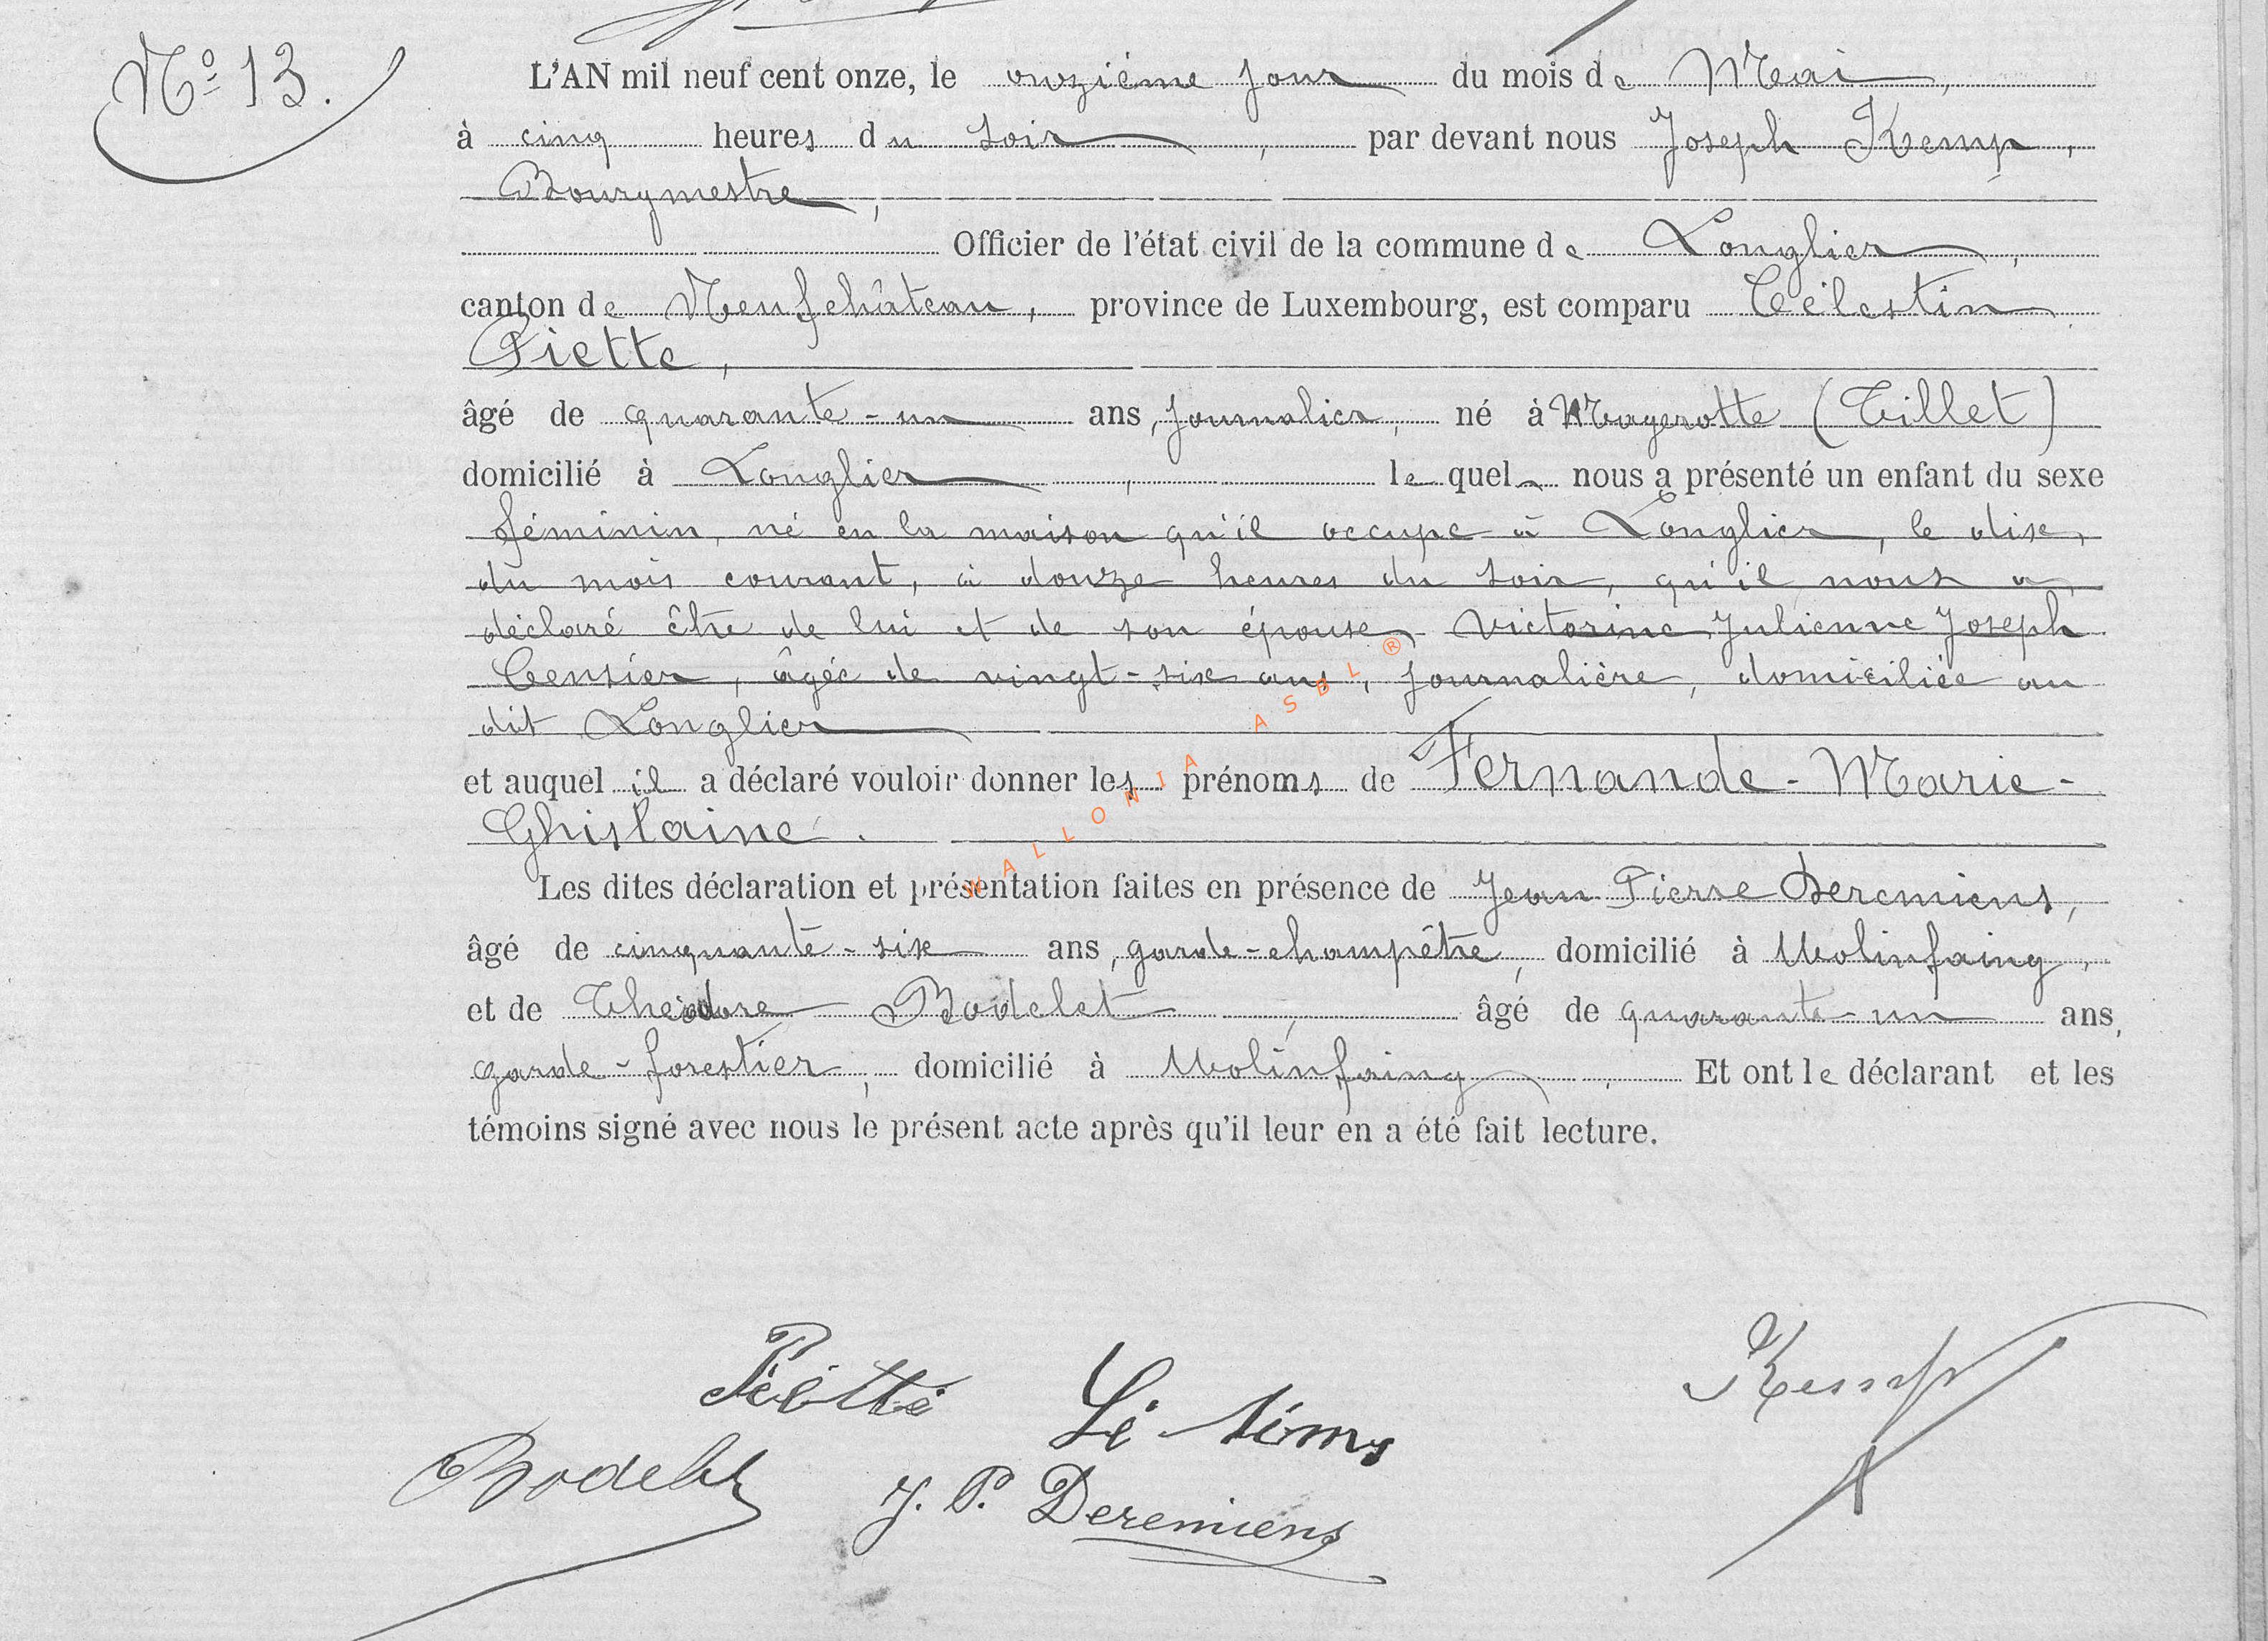 N° 13.
L'AN mil neuf cent onze, le onzième jour du mois de Mai,
à cinq heures du soir, par devant nous Joseph Kemp,
Bourgmestre,
Officier de l'état civil de la commune de Longlier,
canton de Neufchâteau, province de Luxembourg, est comparu Célestin
Piette,
âgé de quarante-un ans, journalier, né à Magerotte (Tillet)
domicilié à Longlier, lequel nous a présenté un enfant du sexe
féminin, né en la maison qu'il occupe à Longlier, le dix,
du mois courant, à douze heures du soir, qu'il nous a
déclaré être de lui et de son épouse, Victorine Julienne Joseph
Censier, âgée de vingt-six ans, journalière, domiciliée au
dit Longlier
et auquel il a déclaré vouloir donner les prénoms de Fernande-Marie-
Ghislaine.
Les dites déclaration et présentation faites en présence de Jean Pierre Deremiens,
âgé de cinquante-six ans, garde-champêtre, domicilié à Molinfaing,
et de Théodore Bodelet, âgé de quarante-un ans,
garde-forestier, domicilié à Molinfaing, Et ont le déclarant et les
témoins signé avec nous le présent acte après qu'il leur en a été fait lecture.
WALLONIA ASBL ®
Piette
Kemp
Bodelet
J. P. Deremiens